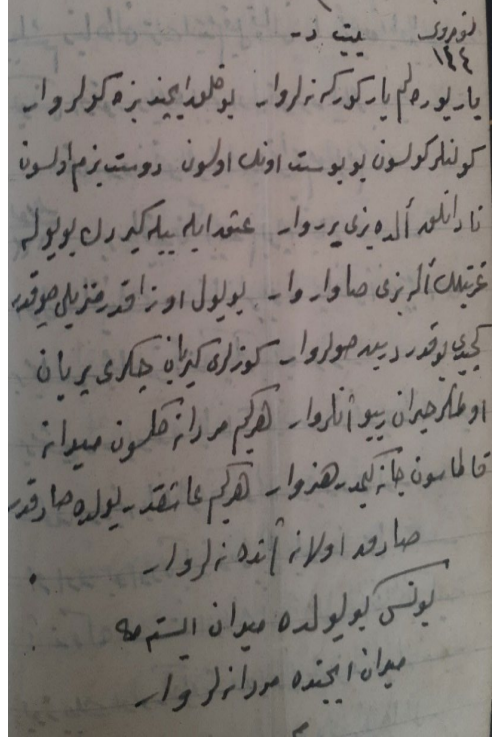 بيت د -
١٤٤
يار يوره كم يار كوركه نه لروار بو خلق ايچنده بزه كولر وار
كولنلر كولسون بو دوست اونك اولسون دوست بزم اولسون
نادانلر آلده بزى ير وار عشق ايله بيله كيدرك بو يوله
بزى صاوار وار بو يول اوزاقدر منزلى چوقدر
كچيدى يوقدر صولر وار كوزلرى كريان جكرى بريان
حيران آنلر وار هركيم مردانه كلسون ميدانه
قالماسون جانه كيمده هنر وار هركيم عاشقدر بو يولده صادقدر
صادق اولانه آنده نه لر وار
يونس بو يولده ميدان ايستر
ميدان ايچنده مردانه لر وار